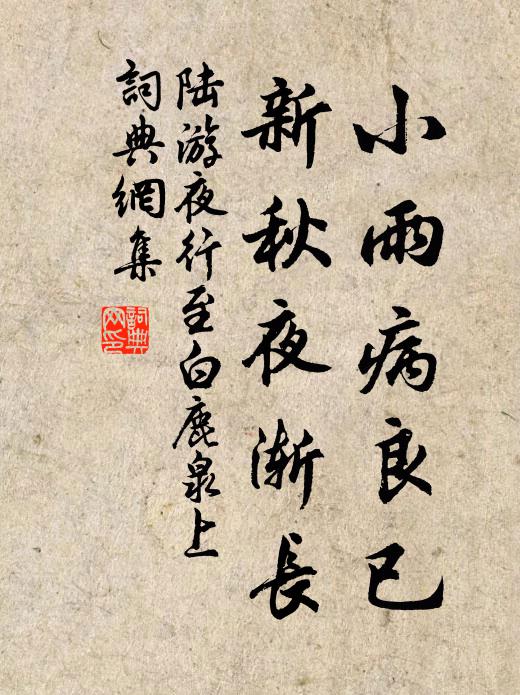 小雨病良已
新秋夜漸長
陆游夜行至白鹿泉上
詞典網集
詞典
网印